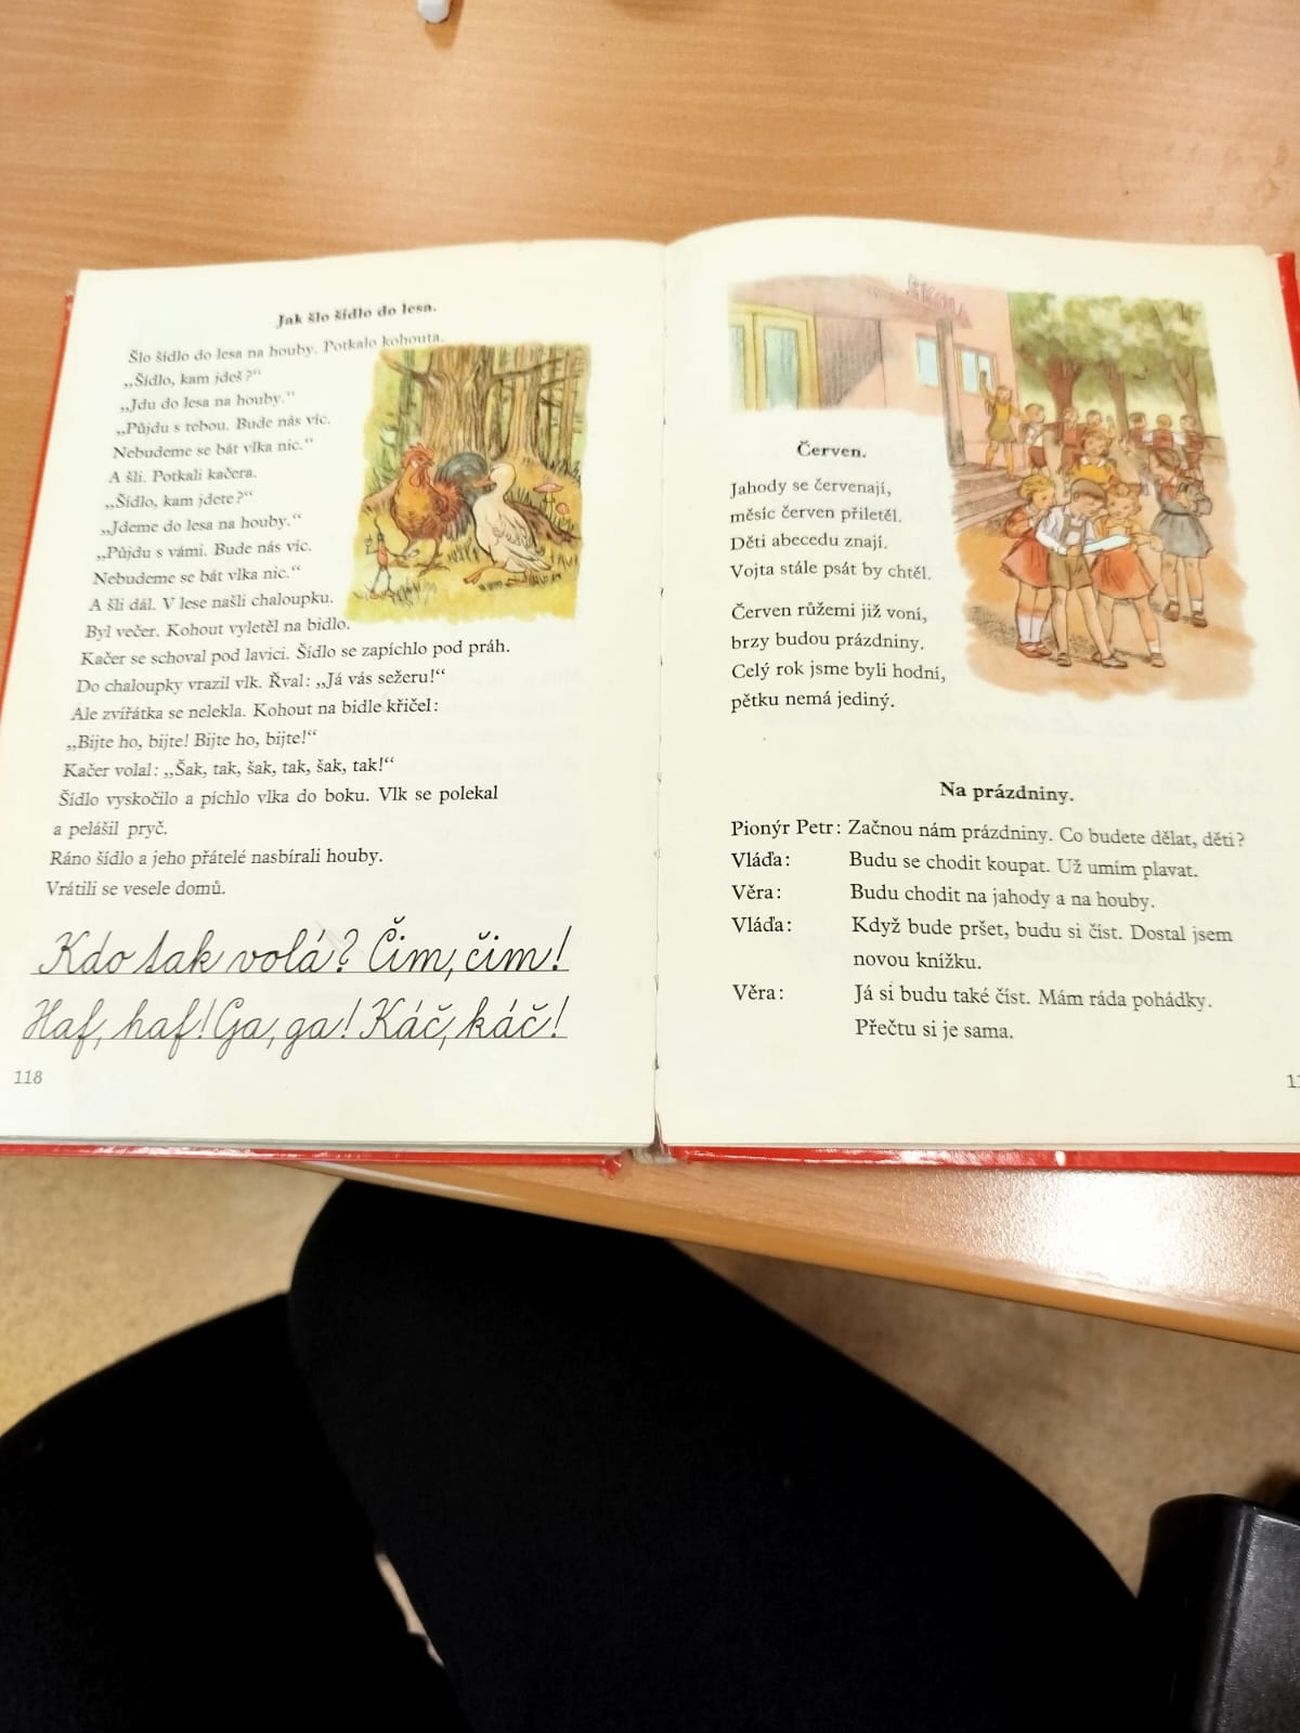 Jak šlo šídlo do lesa.
Šlo šídlo do lesa na houby. Potkalo kohouta.
„Šídlo, kam jdeš?“
„Jdu do lesa na houby.“
„Půjdu s tebou. Bude nás víc.
Nebudeme se bát vlka nic.“
A šli. Potkali kačera.
„Šídlo, kam jdete?“
„Jdeme do lesa na houby.“
„Půjdu s vámi. Bude nás víc.
Nebudeme se bát vlka nic.“
A šli dál. V lese našli chaloupku.
Byl večer. Kohout vyletěl na bidlo.
Kačer se schoval pod lavici. Šídlo se zapíchlo pod práh.
Do chaloupky vrazil vlk. Řval: „Já vás sežeru!“
Ale zvířátka se nelekla. Kohout na bidle křičel:
„Bijte ho, bijte! Bijte ho, bijte!“
Kačer volal: „Šak, tak, šak, tak, šak, tak!“
Šídlo vyskočilo a píchlo vlka do boku. Vlk se polekal
a pelášil pryč.
Ráno šídlo a jeho přátelé nasbírali houby.
Vrátili se vesele domů.
Kdo tak volá? Čim, čim!
Haf, haf! Ga, ga! Káč, káč!
118
ŠKOLA
Červen.
Jahody se červenají,
měsíc červen přiletěl.
Děti abecedu znají.
Vojta stále psát by chtěl.
Červen růžemi již voní,
brzy budou prázdniny.
Celý rok jsme byli hodní,
pětku nemá jediný.
Na prázdniny.
Pionýr Petr: Začnou nám prázdniny. Co budete dělat, děti?
Vláďa: Budu se chodit koupat. Už umím plavat.
Věra: Budu chodit na jahody a na houby.
Vláďa: Když bude pršet, budu si číst. Dostal jsem
novou knížku.
Věra: Já si budu také číst. Mám ráda pohádky.
Přečtu si je sama.